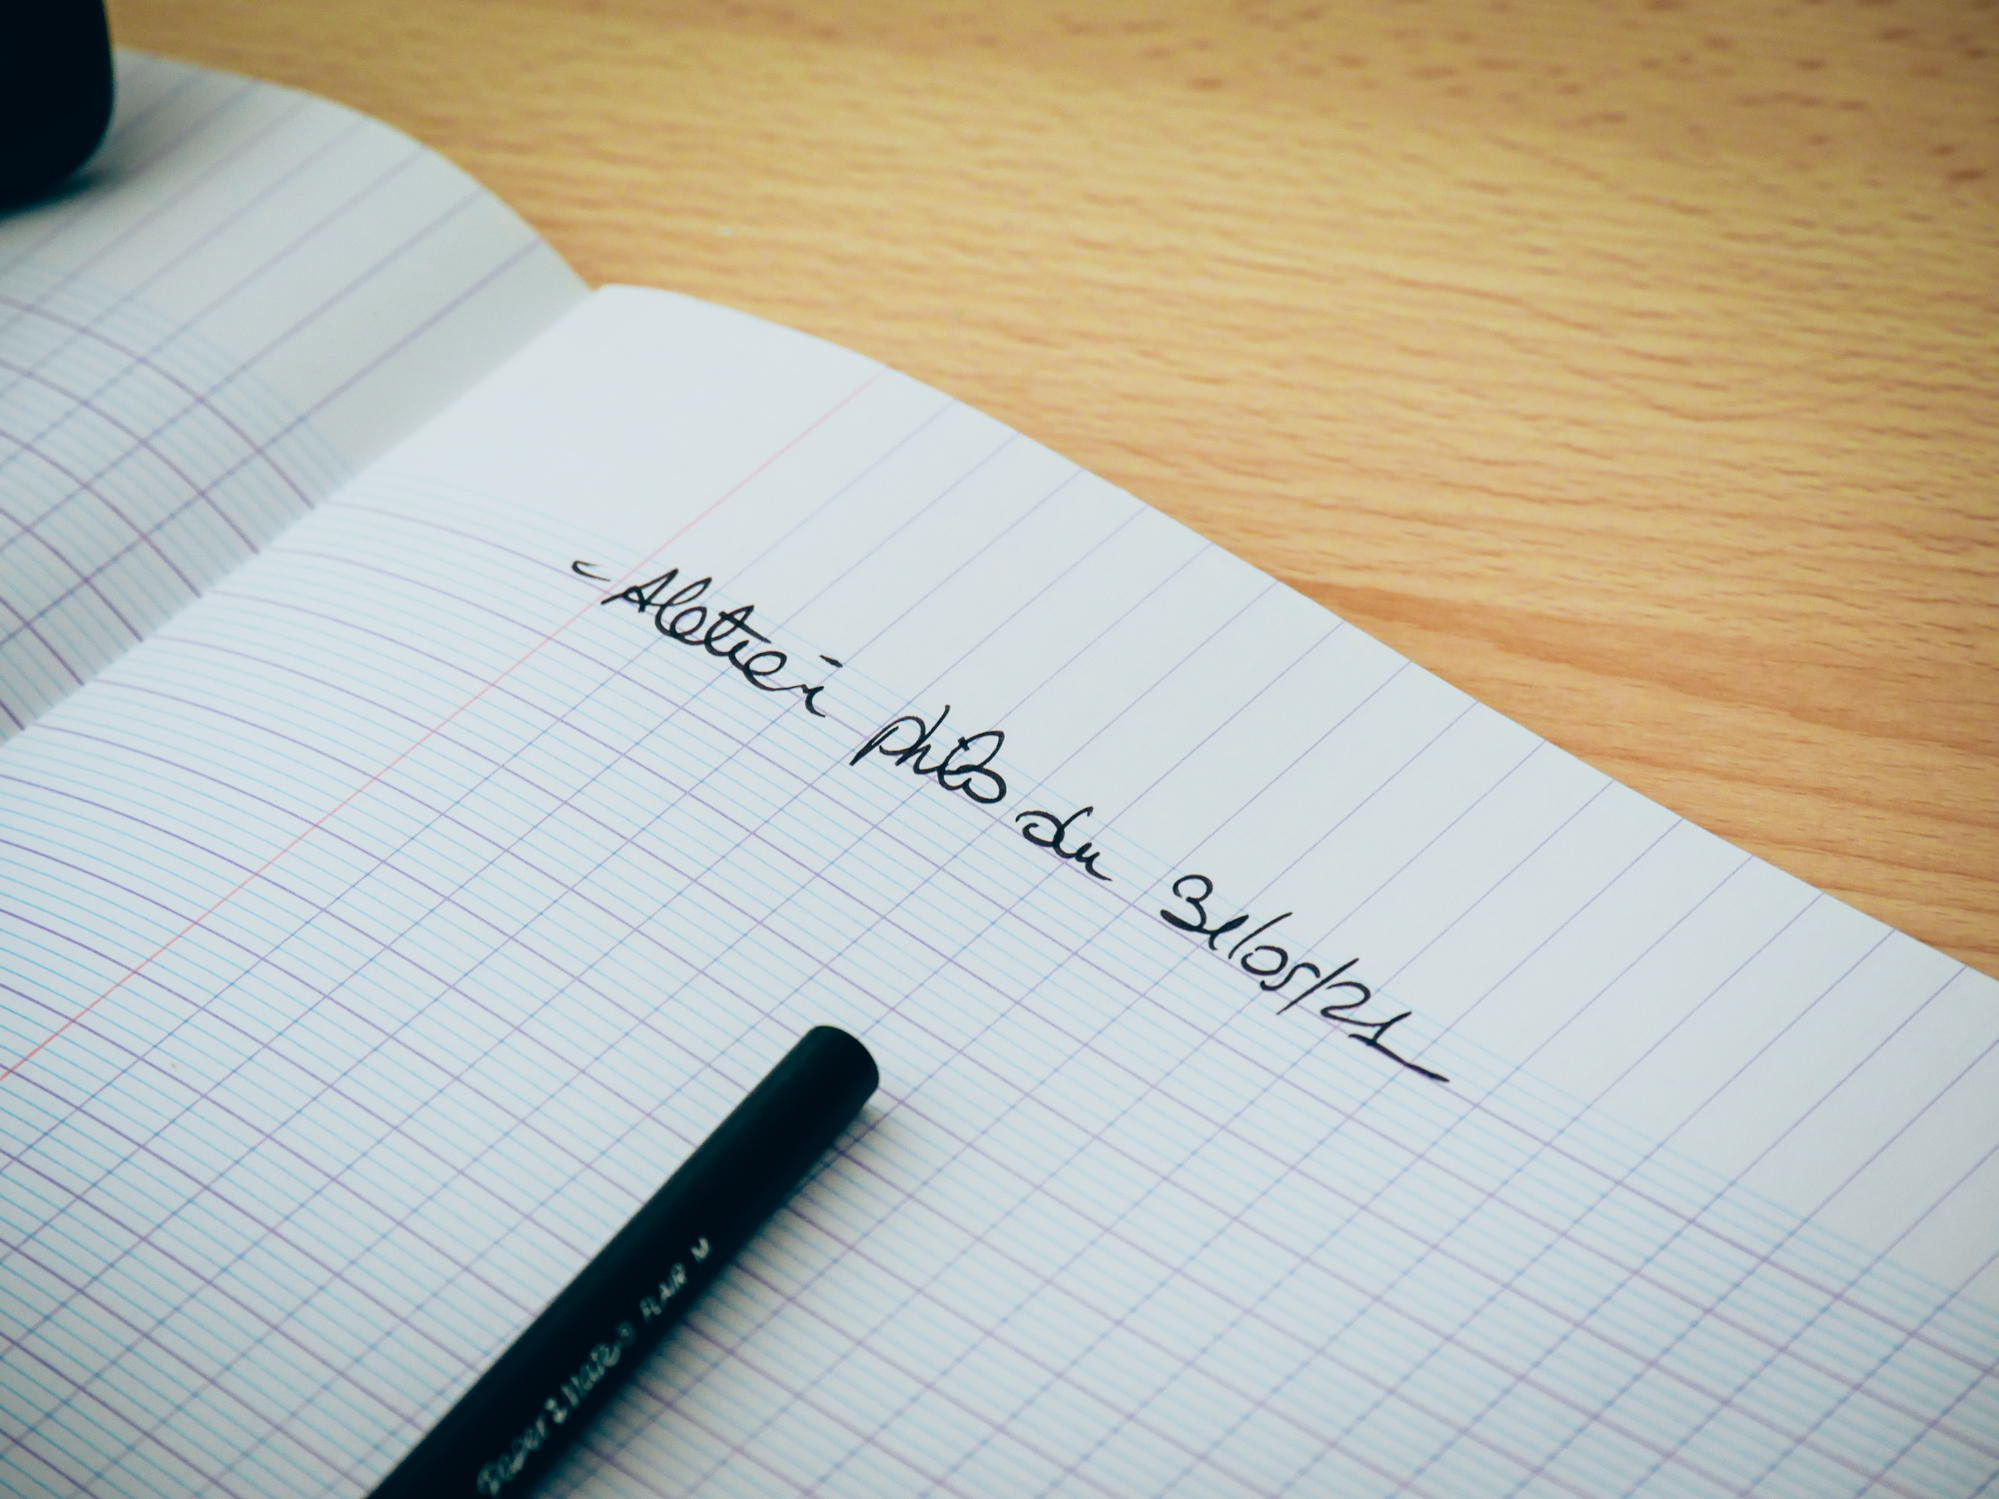 - Atelier philo du 31/05/21
Paper:Mate FLAIR M